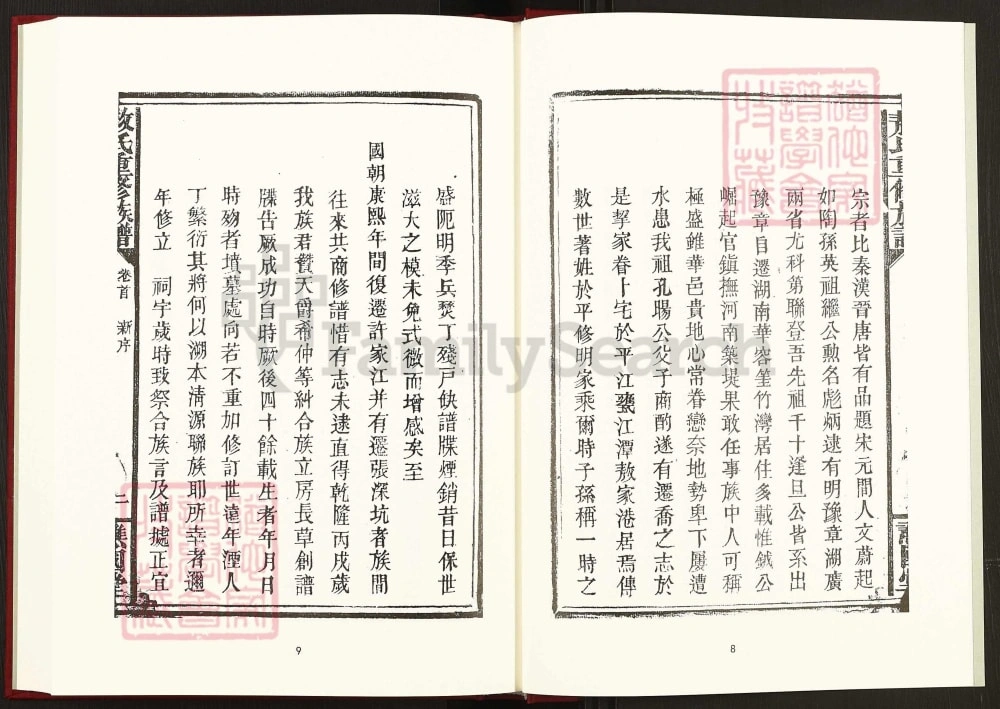 宗者比秦漢晉唐皆有品題宋元間人文蔚起
如陶孫英祖繼公勲名彪炳逮有明豫章湖廣
兩省尤科第聯登吾先祖千十逢旦公皆系出
豫章自遷湖南華容筀竹灣居住多載惟鉞公
崛起官鎮撫河南築堤果敢任事族中人可稱
極盛雖華邑貴地心常眷戀奈地勢卑下屢遭
水患我祖孔暘公父子商酌遂有遷喬之志於
是挈家眷卜宅於平江甕江潭敖家港居焉傳
數世著姓於平修明家乘爾時子孫稱一時之
8
盛阨明季兵燹丁殘戸缺譜牒煙銷昔日保世
滋大之模未免式微而增感矣至
國朝康熙年間復遷許家江并有遷張深坑者族間
往來共商修譜惜有志未逮直得乾隆丙戌歲
我族君贊天爵希仲等糾合族立房長草創譜
牒告厥成功自時厥後四十餘載生者年月日
時殁者墳墓處向若不重加修訂世遠年湮人
丁繁衍其將何以溯本清源聯族耶所幸者邇
年修立 祠宇歲時致祭合族言及譜據正宜
敖氏重修族譜
卷首 新序
二
9
FamilySearch